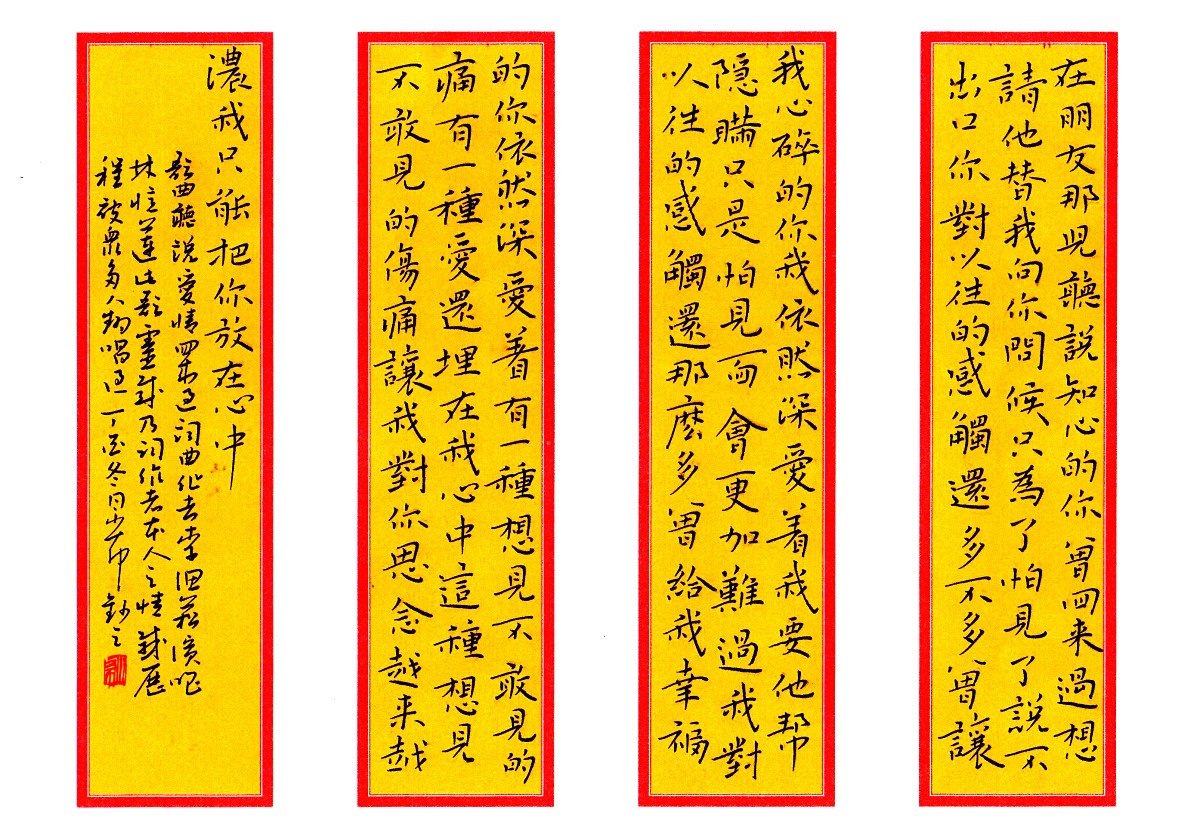 在朋友那兒聽說知心的你曾回来過想
請他替我向你問候只為了怕見了說不
出口你對以往的感觸還多不多曾讓
我心碎的你我依然深愛着我要他帮
隱瞞只是怕見面會更加難過我對
以往的感觸還那麽多曾給我幸福
的你依然深愛着有一種想見不敢見的
痛有一種愛還埋在我心中這種想見
不敢見的傷痛讓我對你思念越来越
濃我只能把你放在心中
歌曲聽說愛情回来過詞曲作者李
林憶蓮此歌靈感乃詞作者本人之情感歷
程被衆多人翻唱過丁酉冬月 鈔之